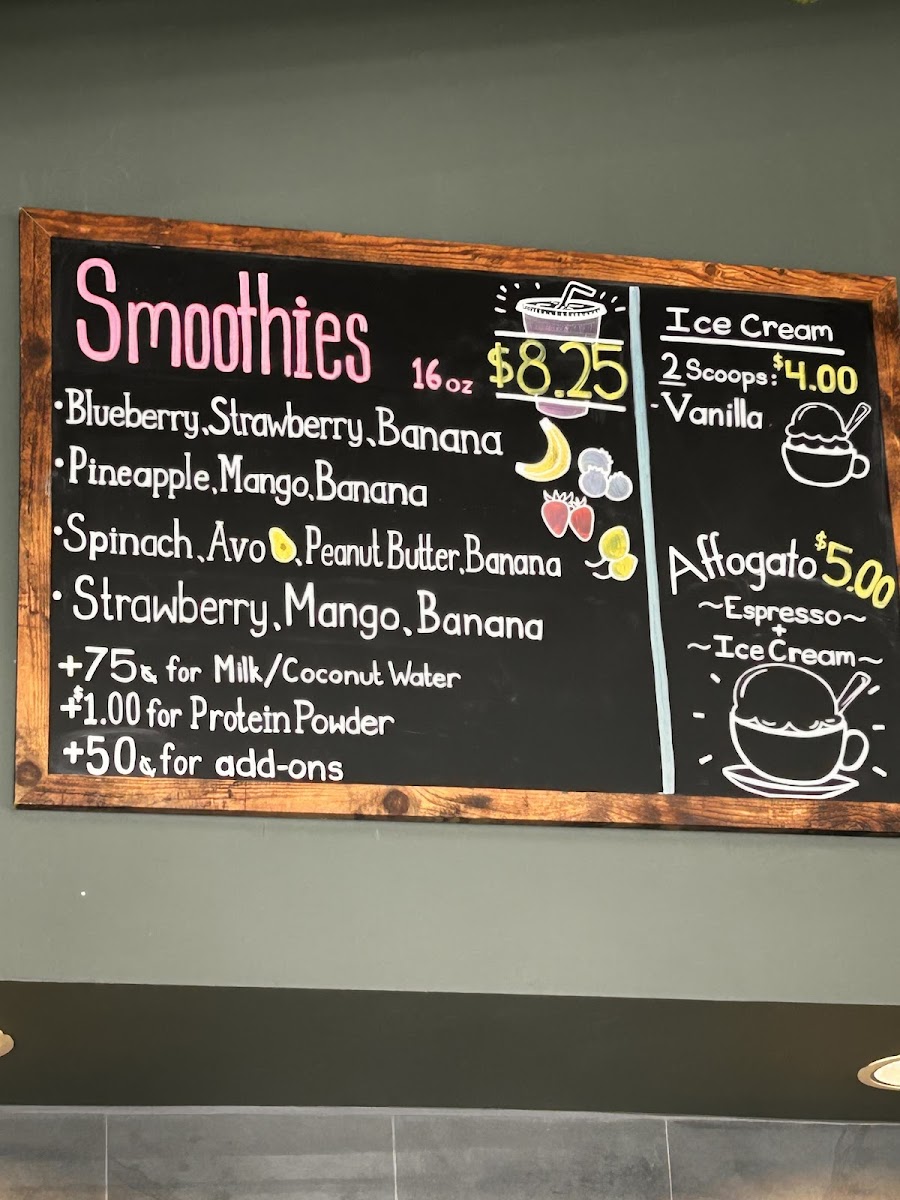 Smoothies
16oz $8.25
·Blueberry,Strawberry,Banana
·Pineapple,Mango,Banana
·Spinach,Avo,Peanut Butter,Banana
·Strawberry,Mango,Banana
+75¢ for Milk/Coconut Water
+$1.00 for Protein Powder
+50¢ for add-ons
Ice Cream
2 Scoops: $4.00
-Vanilla
Affogato $5.00
~Espresso~
+
~Ice Cream~